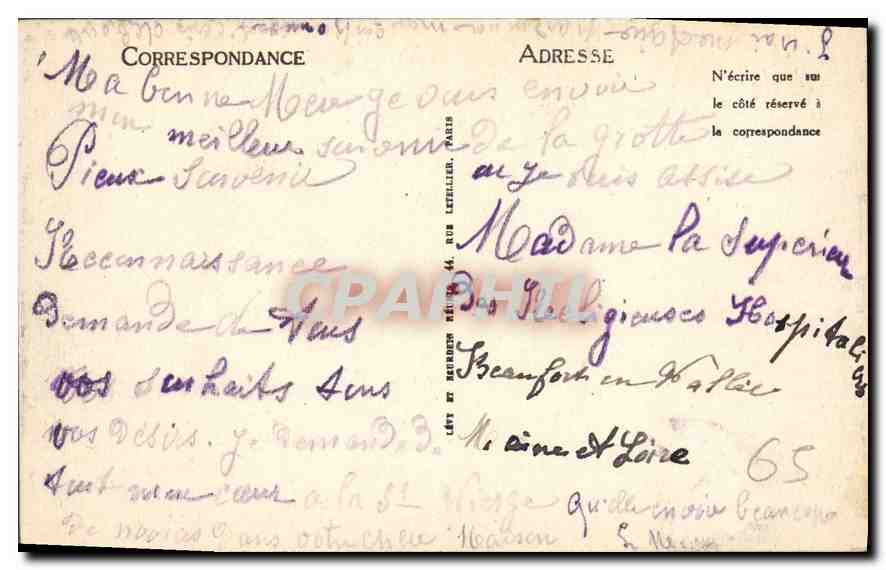 CORRESPONDANCE
ADRESSE
N'écrire que sur
le côté réservé à
la correspondance
Ma bonne Mere je vous envoie
mon meilleur souvenir de la grotte
Pieux Souvenir
ou je suis assise
Reconnaissance
Demande de tous
vos souhaits tous
vos Desirs. je Demande
tout mon cœur a la St Vierge qu'elle envoie beaucoup
De novices Dans votre chère Maison
Madame la Superieur
Des Religieuses Hospitalières
Beaufort en Vallée
Maine et Loire
65
LÉVY ET NEURDEIN RÉUNIS, 44, RUE LETELLIER, PARIS
CPAPHIL